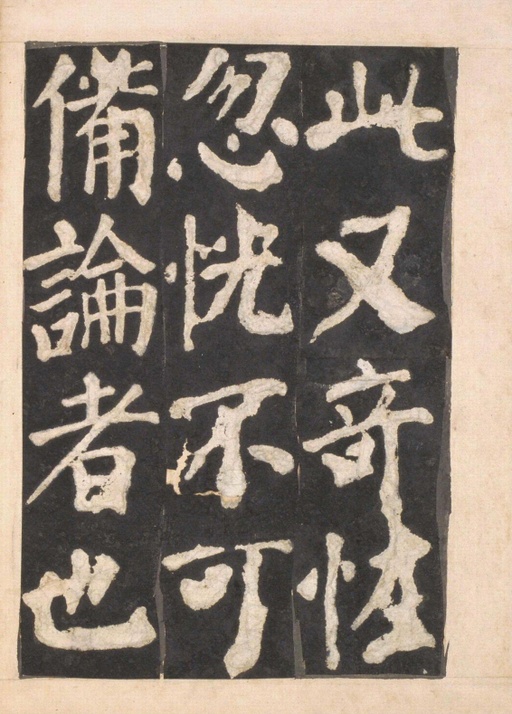 此又奇恠
忽恍不可
備論者也